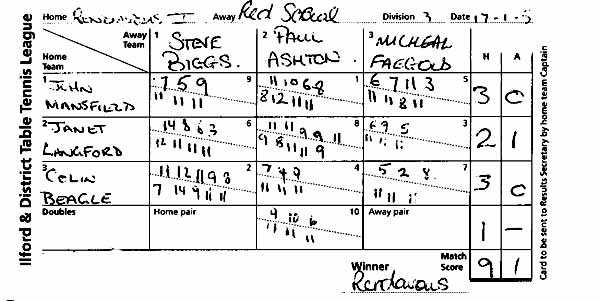 Ilford & District Table Tennis League
Home Rendezvous I Away Red Social Division 3 Date 17-1-5
Away Team 1 STEVE BIGGS. 2 PAUL ASHTON. 3 MICHEAL FAEGOLD H A
Home Team
1 JOHN MANSFIELD 7 5 9 9 11 10 6 8 1 6 7 11 3 5 3 0
11 11 11 8 12 11 11 11 11 8 11
2 JANET LANGFORD 14 8 6 3 6 11 11 9 9 11 8 6 9 5 3 2 1
12 11 11 11 9 8 11 11 9 11 11 11
3 COLIN BEAGLE 11 12 11 9 8 2 7 4 9 4 5 2 8 7 3 0
7 14 9 11 11 11 11 11 11 11 11
Doubles Home pair 9 10 6 10 Away pair 1 -
11 11 11
Winner Rendezvous Match Score 9 1
Card to be sent to Results Secretary by home team Captain